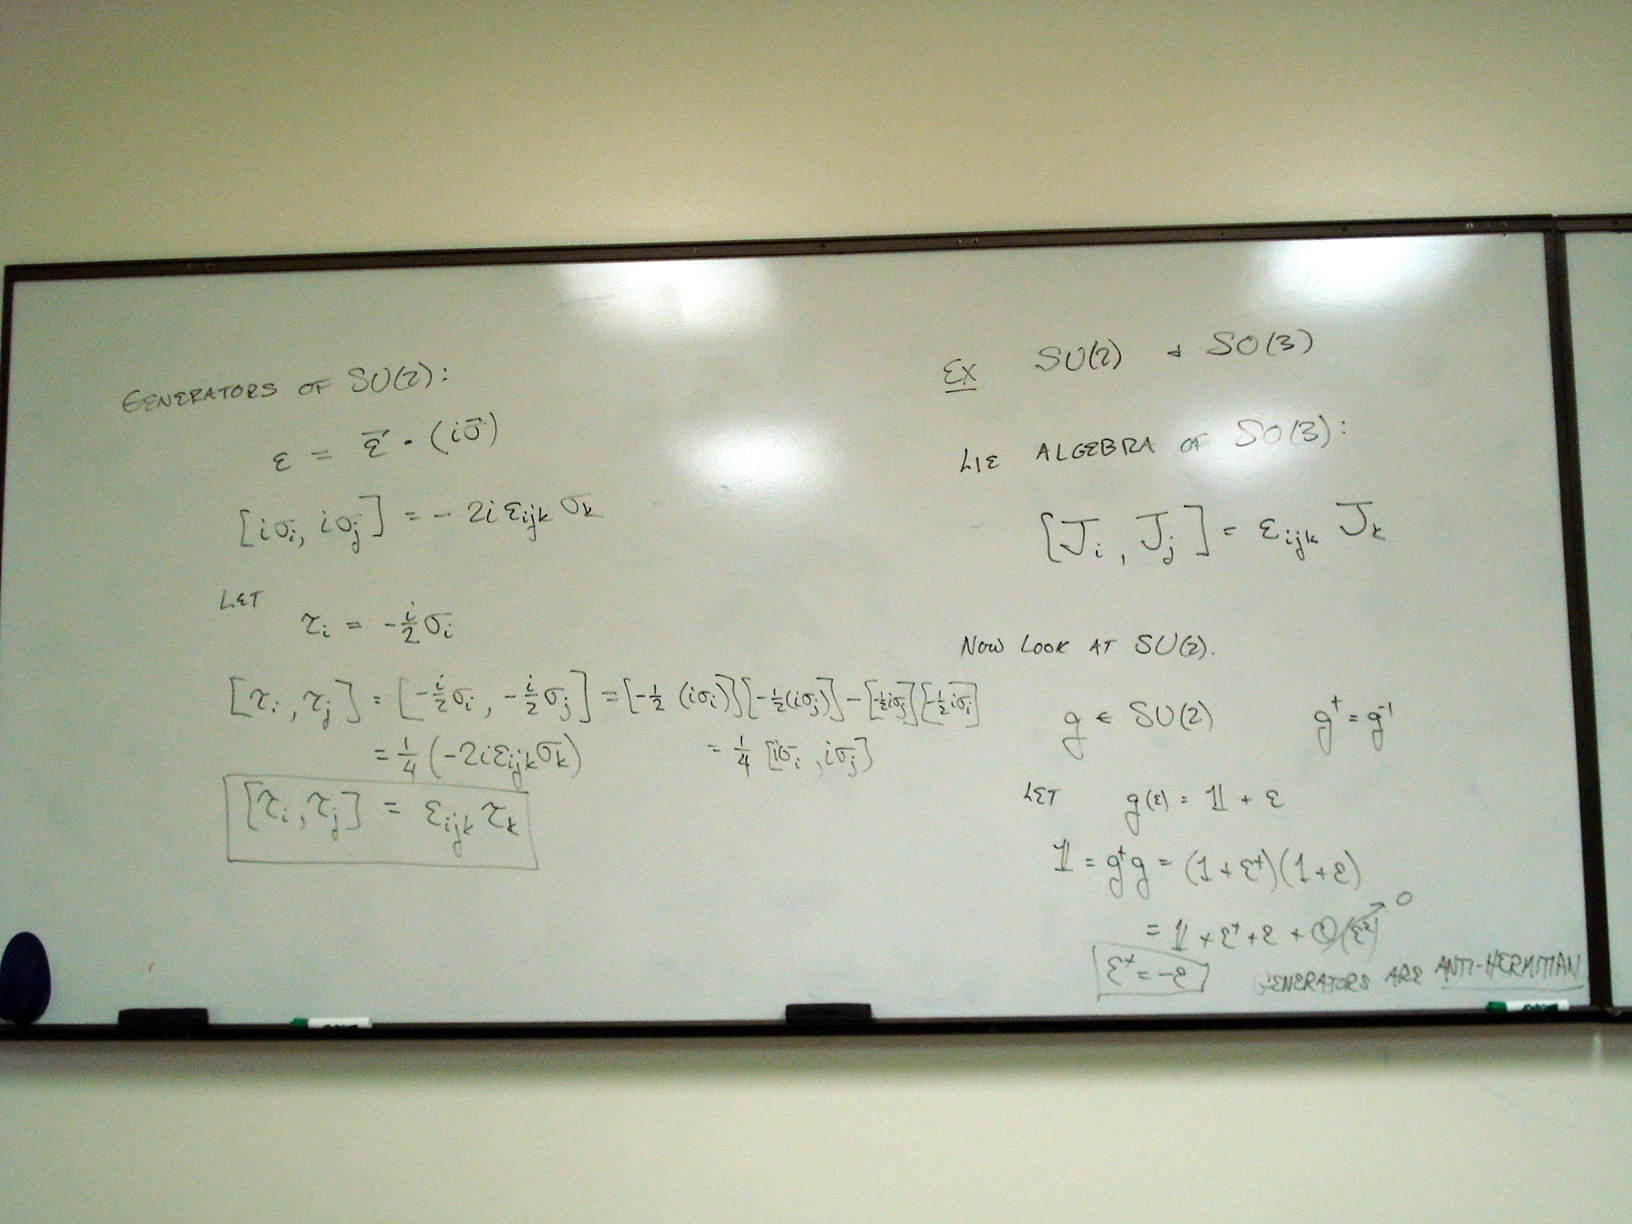 GENERATORS OF SU(2):
ε = ε⃗ · (iσ⃗)
[iσᵢ, iσⱼ] = - 2i εᵢⱼₖ σₖ
LET
τᵢ = -i/2 σᵢ
[τᵢ, τⱼ] = [-i/2 σᵢ, -i/2 σⱼ] = [-1/2 (iσᵢ)][-1/2(iσⱼ)] - [-1/2 iσⱼ][-1/2 iσᵢ]
= 1/4 (-2iεᵢⱼₖσₖ) = 1/4 [iσᵢ, iσⱼ]
[τᵢ, τⱼ] = εᵢⱼₖ τₖ
EX SU(2) & SO(3)
LIE ALGEBRA OF SO(3):
[Jᵢ, Jⱼ] = εᵢⱼₖ Jₖ
NOW LOOK AT SU(2).
g ∈ SU(2) g† = g⁻¹
LET g(ε) = 𝟙 + ε
𝟙 = g†g = (1 + ε†)(1 + ε)
= 𝟙 + ε† + ε + O(ε²) → 0
ε† = -ε GENERATORS ARE ANTI-HERMITIAN